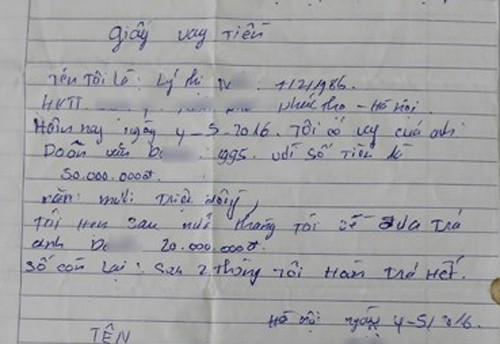 Giấy vay tiền
Tên tôi là: Lý thị 1986.
HKTT Phúc Thọ - Hà Nội.
Hôm nay ngày 4-5-2016. Tôi có vay của anh
Doãn văn 1995. với số tiền là
50.000.000đ.
năm mươi triệu đồng,
Tôi hẹn sau nửa tháng tôi sẽ đưa trả
anh 20.000.000đ.
Số còn lại: sau 2 tháng tôi Hoàn Trả Hết.
Hà Nội ngày 4-5/2016.
TÊN